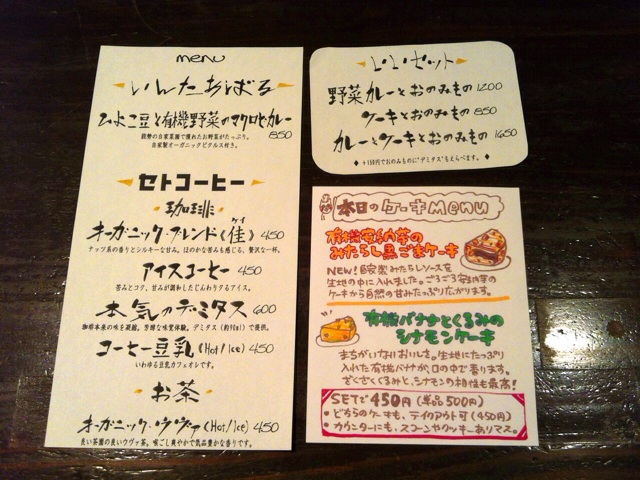 menu
いんたあばる
ひよこ豆と有機野菜のマクロビカレー
850
能勢の自家菜園で獲れたお野菜がたっぷり。
自家製オーガニックピクルス付き。
セトコーヒー
珈琲
オーガニック・ブレンド(佳) 450
ナッツ系の香りとシルキーな甘み。ほのかな苦みを感じる、贅沢な一杯。
アイスコーヒー 450
苦みとコク、甘みが調和したじんわりするアイス。
本気のデミタス 600
珈琲本来の味を凝縮。芳醇な味覚体験。デミタス(約90ml)で提供。
コーヒー豆乳(Hot/Ice) 450
いわゆる豆乳カフェオレです。
お茶
オーガニック・ウヴァ(Hot/Ice) 450
良い茶園の良いウヴァ茶。喉ごし爽やかで気品豊かな香りです。
いいセット
野菜カレーとおのみもの 1200
ケーキとおのみもの 850
カレーとケーキとおのみもの 1650
◆ +150円でおのみものに"デミタス"もえらべます。 ◆
本日のケーキMenu
有機安納芋の
みたらし黒ごまケーキ
NEW! 自家製みたらしソースを
生地の中に入れました。ごろごろ安納芋の
ケーキから自然の甘みたっぷり広がります。
有機バナナとくるみの
シナモンケーキ
まちがいないおいしさ。生地にたっぷり
入れた有機バナナが、口の中で香ります。
ざくざくくるみと、シナモンの相性も最高!
SETで450円(単品500円)
・どちらのケーキも、テイクアウト可(450円)
・カウンターにも、スコーンやクッキーありマス。